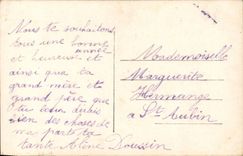 Nous te souhaitons
tous une bonne
année
et heureuse et
ainsi que ta
grand mère et
grand père que
tu
bien des choses de
ma part ta
tante
Mademoiselle
Marguerite
Hermange
a St Aubin